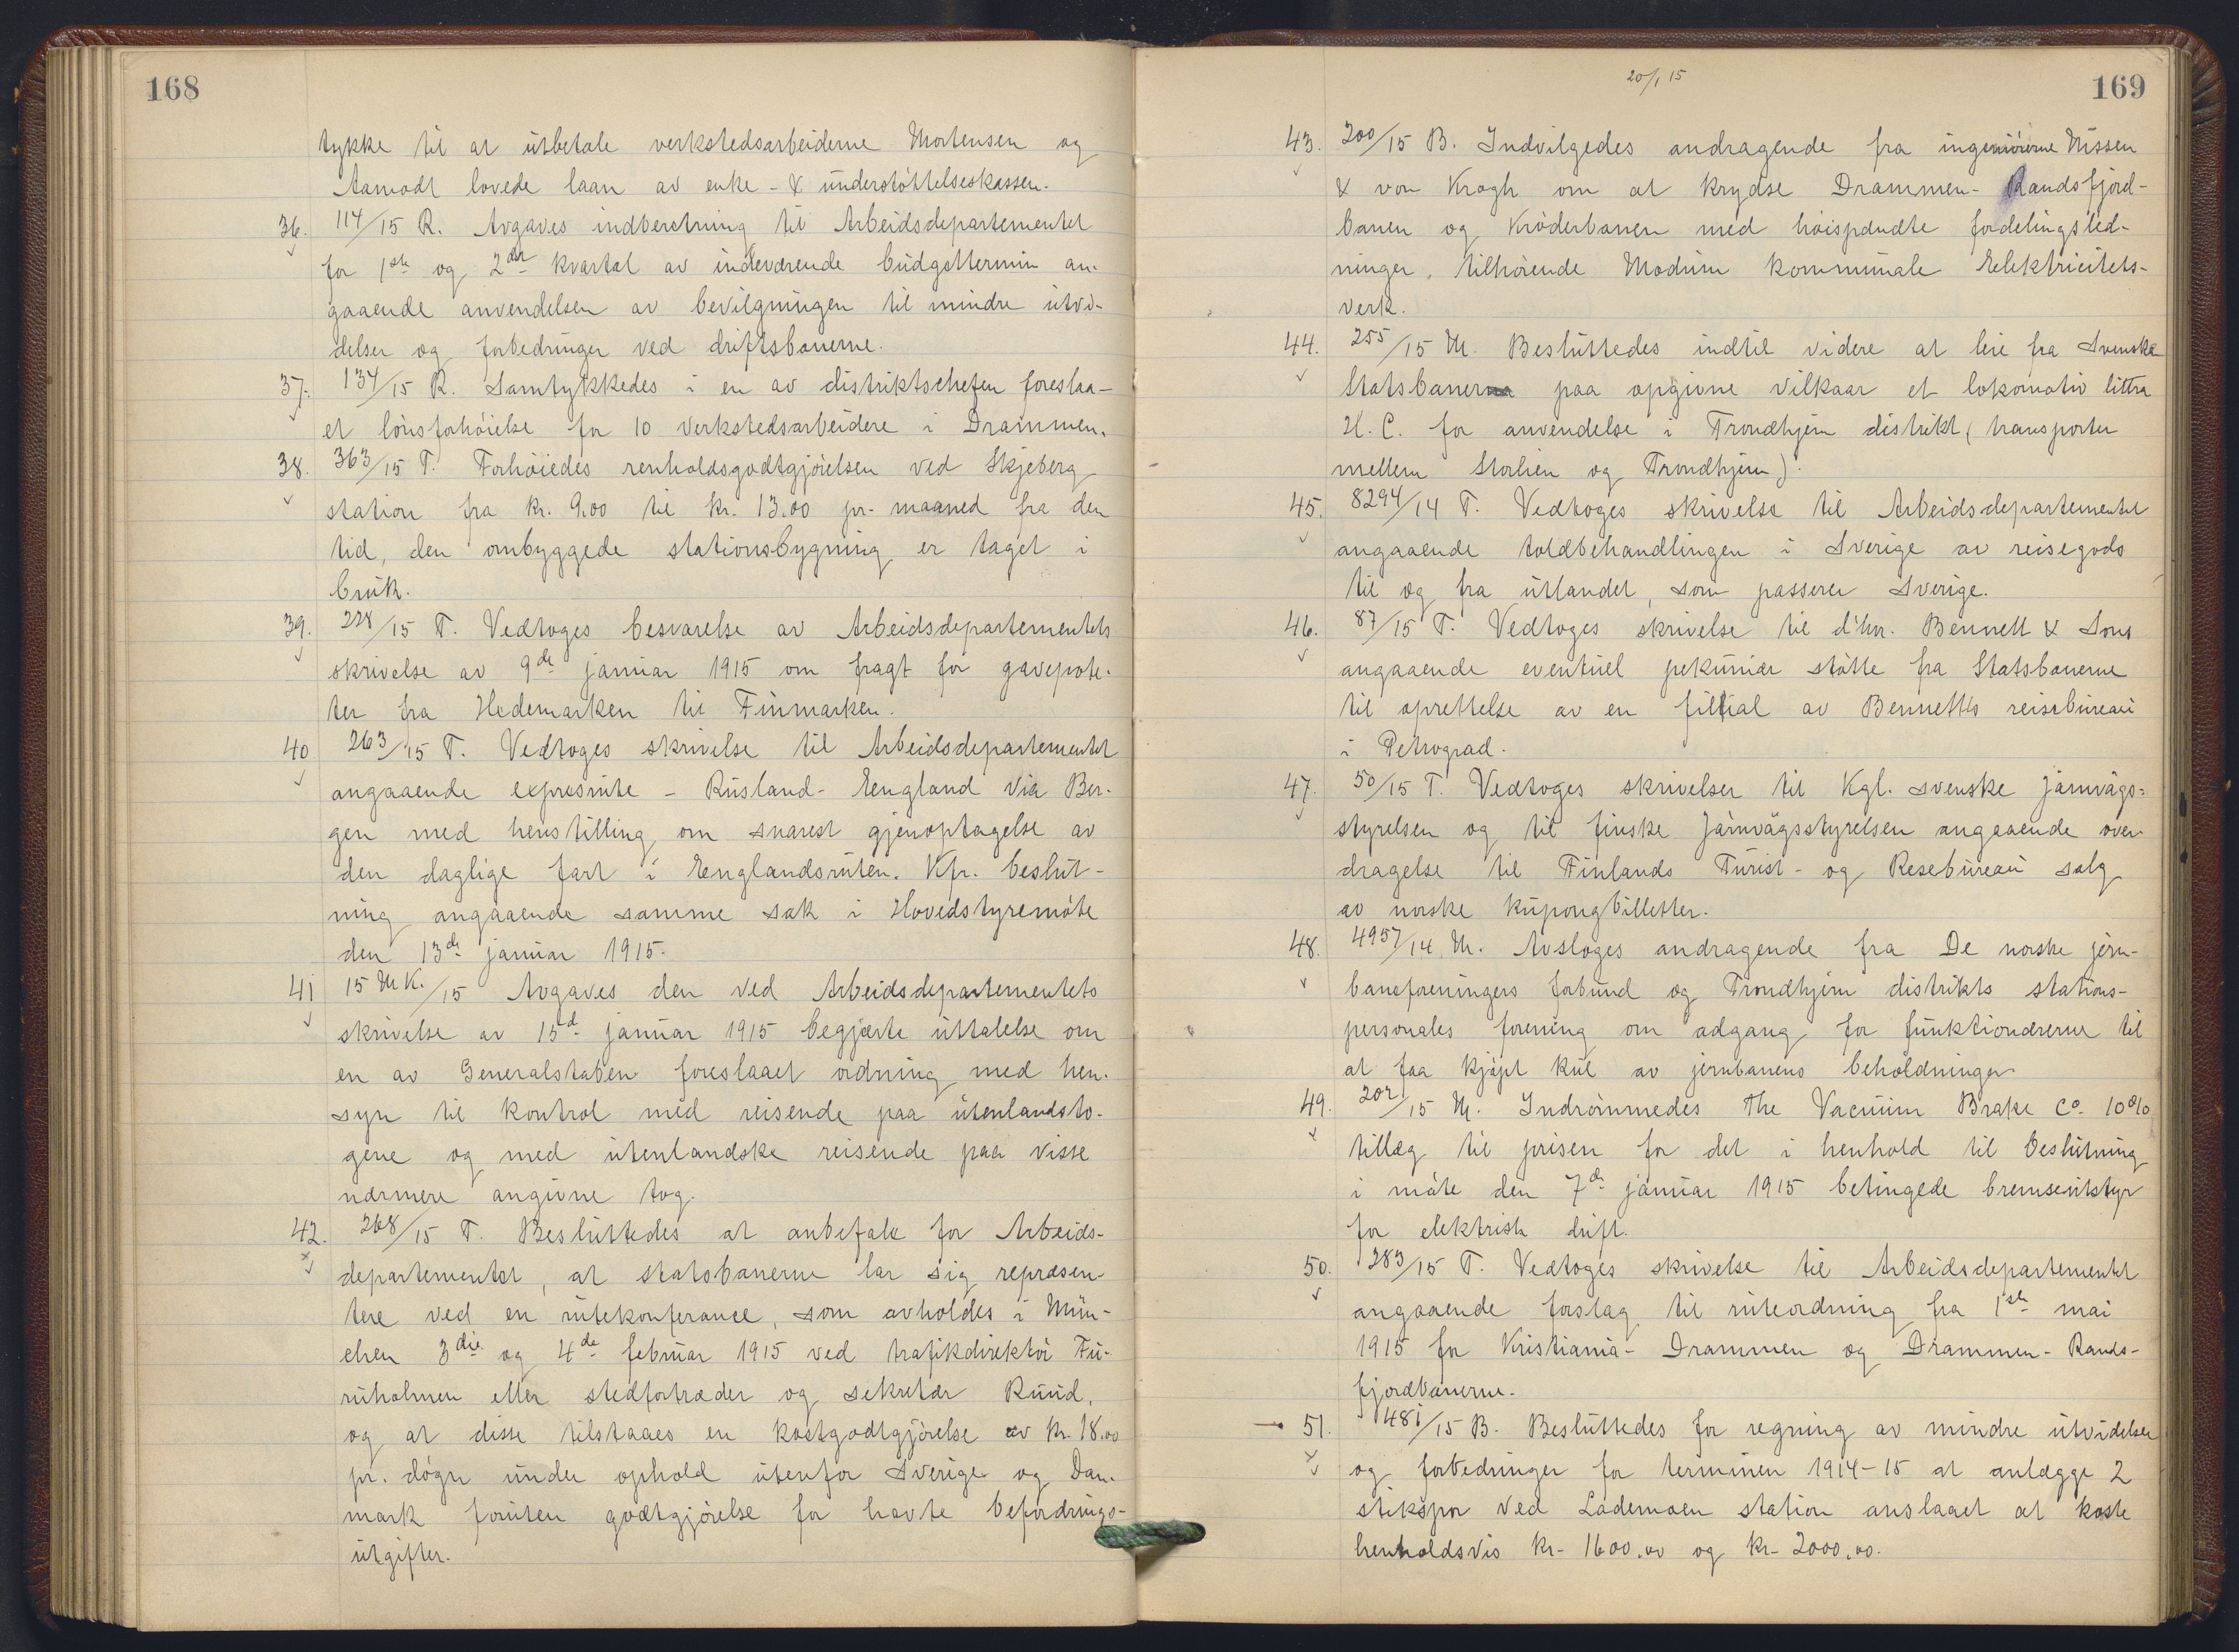 168
tykke til at utbetale verkstedsarbeiderne Mortensen og
Aamodt lovede laan av enke- & understøttelseskassen.
36. 114/15 R. Avgaves indberetning til Arbeidsdepartementet
for 1ste og 2det kvartal av indeværende budgettermin an-
gaaende anvendelsen av bevilgningen til mindre utvi-
delser og forbedringer ved driftsbanerne.
37. 134/15 R. Samtykkedes i en av distriktschefen foreslaa-
et lønsforhøielse for 10 verkstedsarbeidere i Drammen.
38. 363/15 T. Forhøiedes renholdsgodtgjørelsen ved Skjeberg
station fra kr. 9.00 til kr. 13.00 pr. maaned fra den
tid, den ombyggede stationsbygning er taget i
bruk.
39. 228/15 T. Vedtoges besvarelse av Arbeidsdepartementets
skrivelse av 9de januar 1915 om fragt for gavepote-
ter fra Hedemarken til Finmarken.
40 263/15 T. Vedtoges skrivelse til Arbeidsdepartementet
angaaende expresrute - Rusland - England via Ber-
gen med henstilling om snarest gjenoptagelse av
den daglige fart i Englandsruten. Kfr. beslut-
ning angaaende samme sak i Hovedstyremøte
den 13de januar 1915.
41 15 MK./15 Avgaves den ved Arbeidsdepartementets
skrivelse av 15de januar 1915 begjærte uttalelse om
en av Generalstaben foreslaaet ordning med hen-
syn til kontrol med reisende paa utenlandsto-
gene og med utenlandske reisende paa visse
nærmere angivne tog.
42. 268/15 T. Besluttedes at anbefale for Arbeids-
departementet, at statsbanerne lar sig repræsen-
tere ved en rutekonferance, som avholdes i Mün-
chen 3die og 4de februar 1915 ved trafikdirektør Fu-
ruholmen eller stedfortræder og sekretær Ruud,
og at disse tilstaaes en kostgodtgjørelse av kr. 18.00
pr. døgn under ophold utenfor Sverige og Dan-
mark foruten godtgjørelse for havte befordrings-
utgifter.
20/1 15
169
43. 200/15 B. Indvilgedes andragende fra ingeniørerne Nissen
& von Krogh om at krydse Drammen-Randsfjord-
banen og Krøderbanen med høispændte fordelingsled-
ninger, tilhørende Modum kommunale Elektricitets-
verk.
44. 255/15 M. Besluttedes indtil videre at leie fra Svenska
Statsbanerna paa opgivne vilkaar et lokomotiv littra
H.C. for anvendelse i Trondhjem distrikt (transporter
mellem Storlien og Trondhjem).
45. 8294/14 T. Vedtoges skrivelse til Arbeidsdepartementet
angaaende toldbehandlingen i Sverige av reisegods
til og fra utlandet, som passerer Sverige.
46. 87/15 T. Vedtoges skrivelse til d'hrr. Bennett & Sons
angaaende eventuel pekuniær støtte fra Statsbanerne
til oprettelse av en filial av Bennetts reisebureau
i Petrograd.
47. 50/15 T. Vedtoges skrivelser til Kgl. svenske järnvägs=
styrelsen og til finske Järnvägsstyrelsen angaaende over-
dragelse til Finlands Turist- og Resebureau salg
av norske kupongbilletter.
48. 4957/14 M. Avsloges andragende fra De norske jern-
baneforeningers forbund og Trondhjem distrikts stations-
personales forening om adgang for funktionærerne til
at faa kjøpt kul av jernbanens beholdninger.
49. 202/15 M. Indrømmedes The Vacuum Brake Co. 10%
tillæg til prisen for det i henhold til beslutning
i møte den 7de januar 1915 betingede bremseutstyr
for elektrisk drift.
50. 283/15 T. Vedtoges skrivelse til Arbeidsdepartementet
angaaende forslag til ruteordning fra 1ste mai
1915 for Kristiania-Drammen og Drammen-Rands-
fjordbanerne.
51. 481/15 B. Besluttedes for regning av mindre utvidelser
og forbedringer for terminen 1914-15 at anlægge 2
stikspor ved Lademoen station anslaaet at koste
henholdsvis kr. 1600.00 og kr. 2000.00.